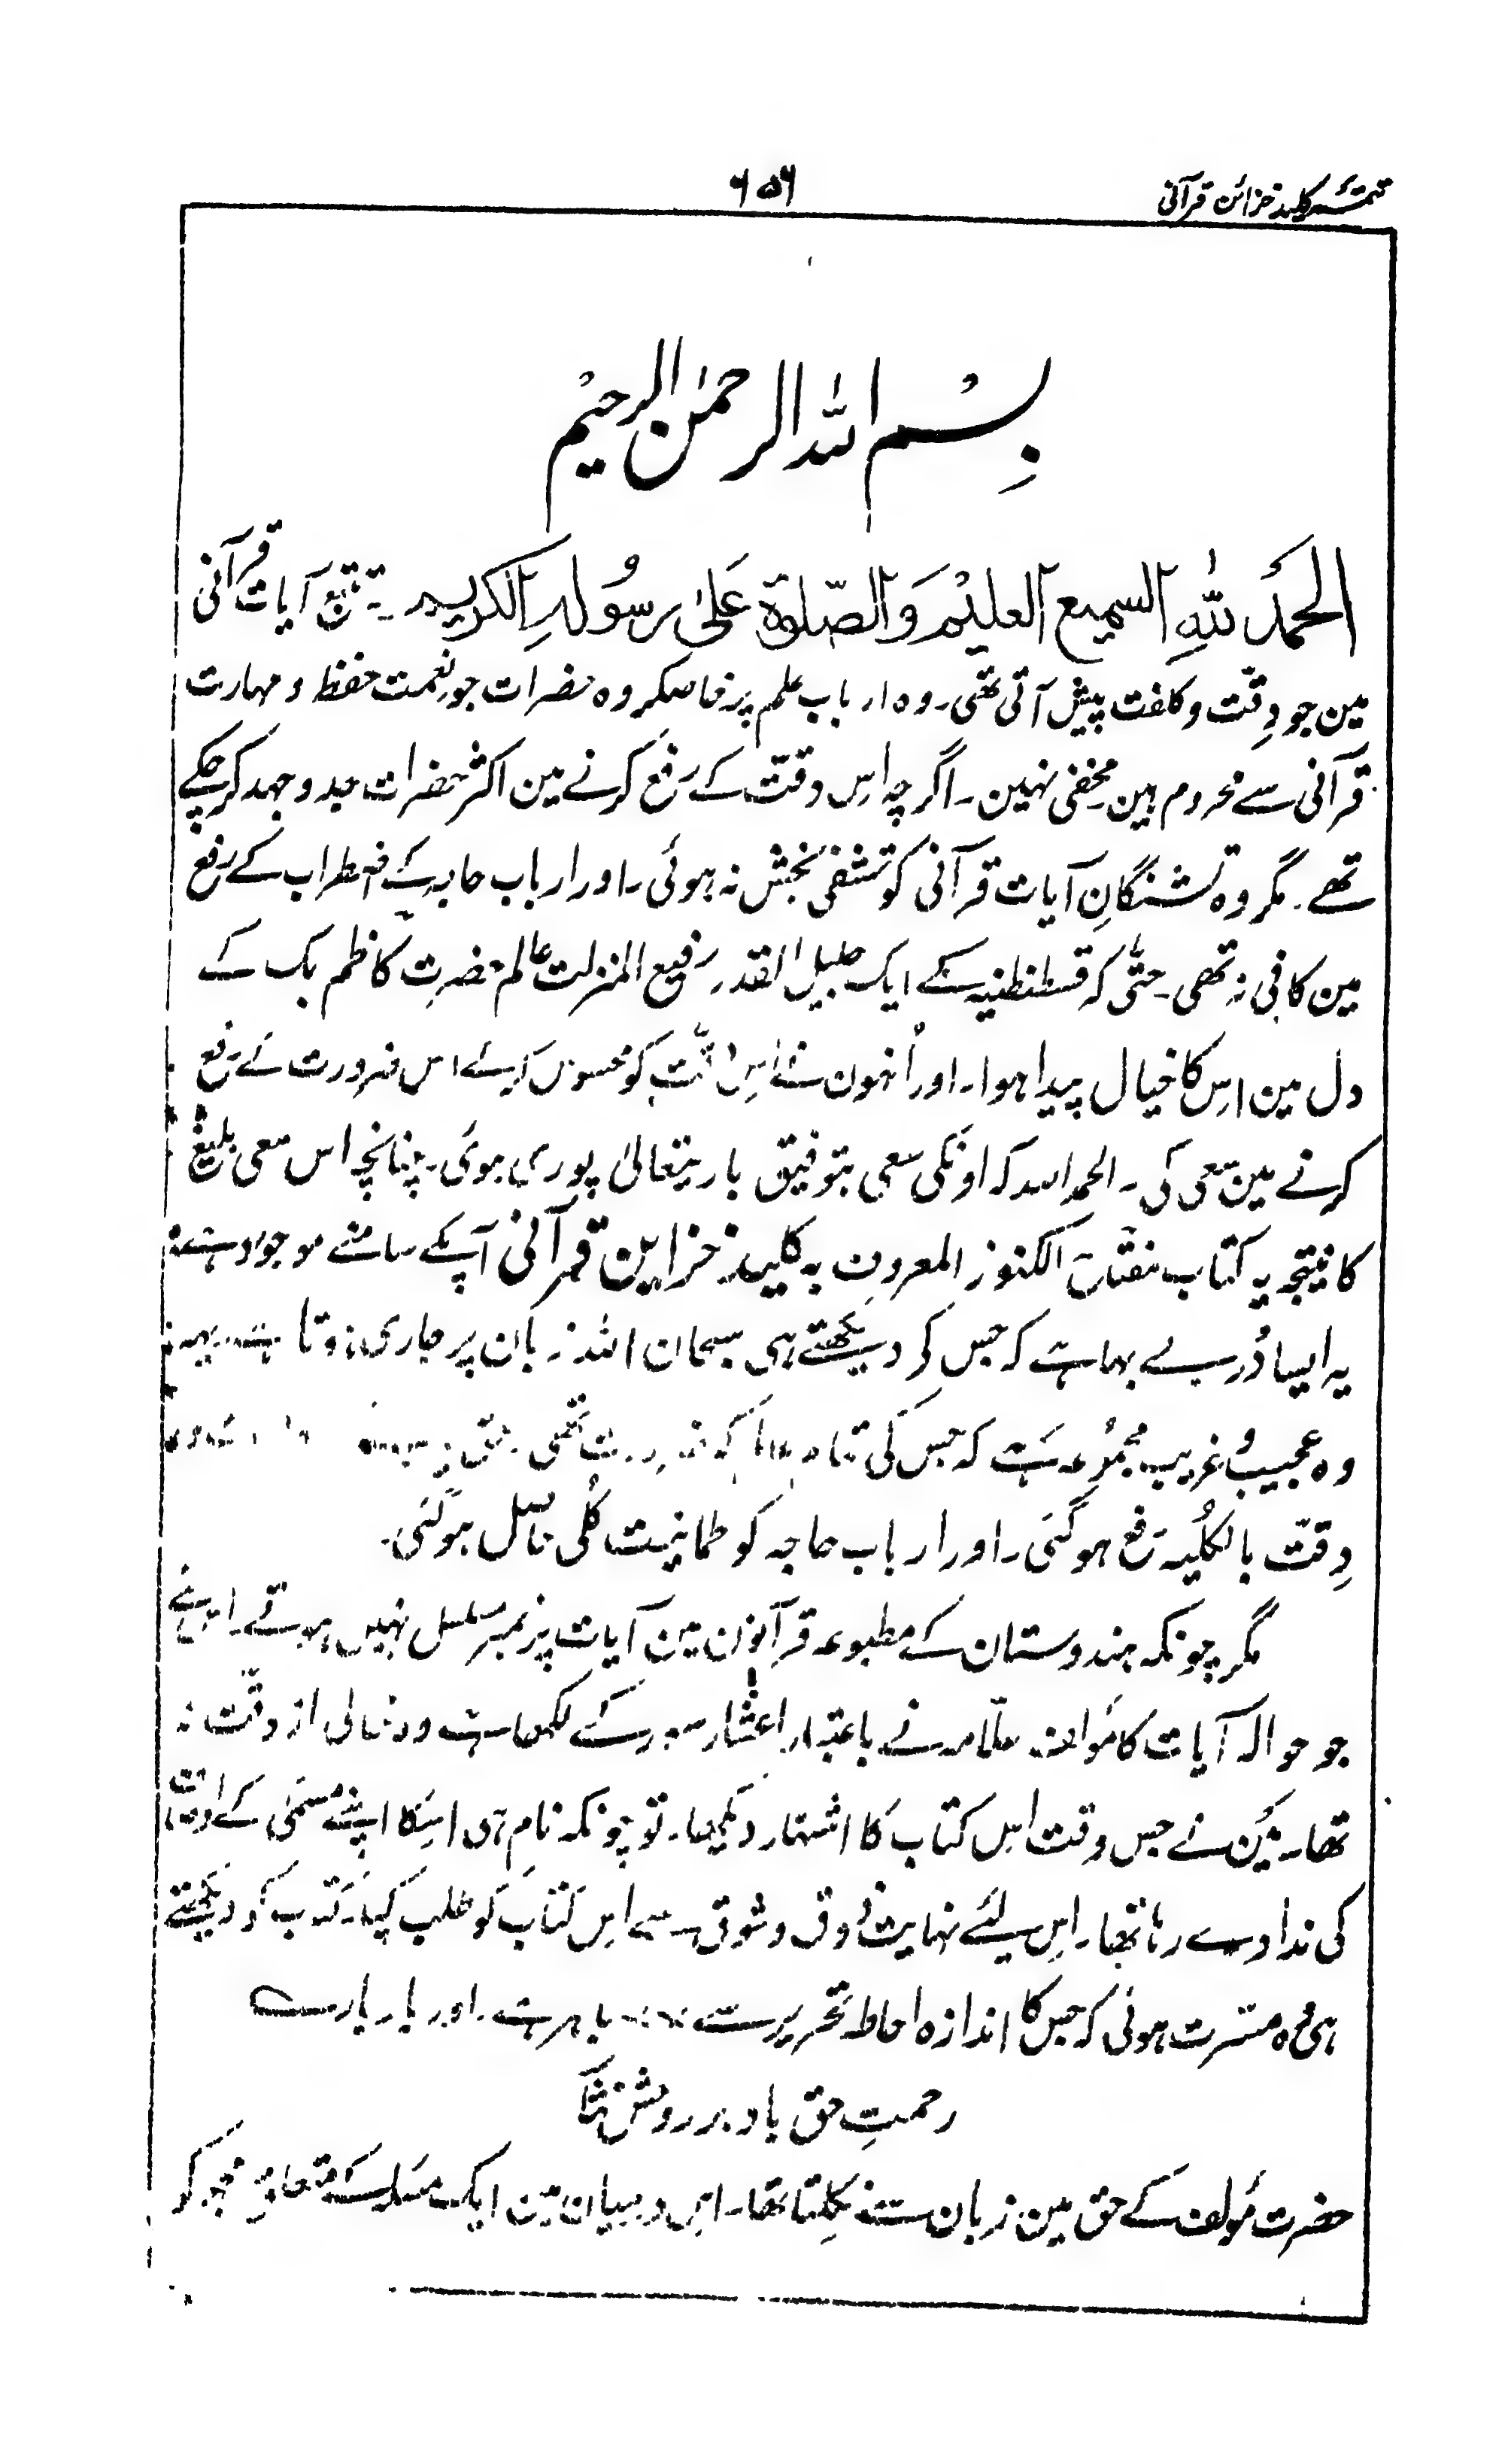 تتمۂ کلید خزائن قرآنی
۶۵۶
بسم اللہ الرحمٰن الرحیم
الحمد للہِ السمیع العلیم وَالصّلوٰۃ عَلیٰ رسُولہِ الکریم ۔ تتبع آیات قرآنی
مین جو دِقّت و کلفت پیش آتی تھی۔ وہ ارباب علم پر خاصکر وہ حضرات جو نعمت حفظ و مہارت
قرآنی سے محروم ہین۔ مخفی نہین۔ اگرچہ اِس دقّت کے رفع کرنے مین اکثر حضرات جد و جہد کر چکے
تھے۔ مگر وہ تشنگانِ آیات قرآنی کو تشفی بخش نہ ہوئی۔ اور ارباب حاجہ کے اضطراب کے رفع
مین کافی نہ تھی۔ حتّٰی کہ قسطنطنیہ کے ایک جلیل القدر رفیع المنزلت عالم حضرت کاظم بک کے
دل مین اِس کا خیال پیدا ہوا۔ اور اُنہون نے اِس دقّت کو محسوس کرکے اس ضرورت کے رفع
کرنے مین سعی کی۔ الحمد اللہ کہ اونکی سعی بتوفیق باریتعالیٰ پوری ہوئی۔ چنانچہ اس سعی بلیغ
کا نتیجہ یہ کتاب مفتاح الکنوز المعروف بہ کلید خزاین قرآنی آپکے سامنے موجود ہے۔
یہ ایسا دُر بے بہا ہے کہ جس کو دیکھتے ہی سبحان اللہ زبان پر جاری ہوتا ہے۔ یہ
وہ عجیب و غریب مجموعہ ہے کہ جس کی علما کو ضرورت تھی۔
دِقّت بالکلیہ رفع ہوگئی۔ اور ارباب حاجہ کو طمانیت کُلی حاصل ہوگئی۔
مگر چونکہ ہندوستان کے مطبوعہ قرآنون مین آیات پر نمبر مسلسل نہیں ہوتے۔ اسلئے
جو حوالہ آیات کا مؤلف علّامہ نے باعتبار اعشار سور کے لکھا ہے وہ خالی از دقّت نہ
تھا۔ مَین نے جس وقت اِس کتاب کا اشتہار دیکھا۔ تو چونکہ نام ہی اسکا اپنے مسمّٰی کے
کی ندا دے رہا تھا۔ اِس لیئے نہایت ذوق و شوق سے اِس کتاب کو طلب کیا۔ کتاب کو دیکھتے
ہی وہ مسرت ہوئی کہ جس کا اندازہ احاطہ تحریر سے باہر ہے۔ اور بار بار
رحمتِ حق باد بر
حضرت مؤلف کے حق مین زبان سے نکلتا تھا۔ اِس درمیان مین ایک مسئلہ کے متعلق مجھ کو